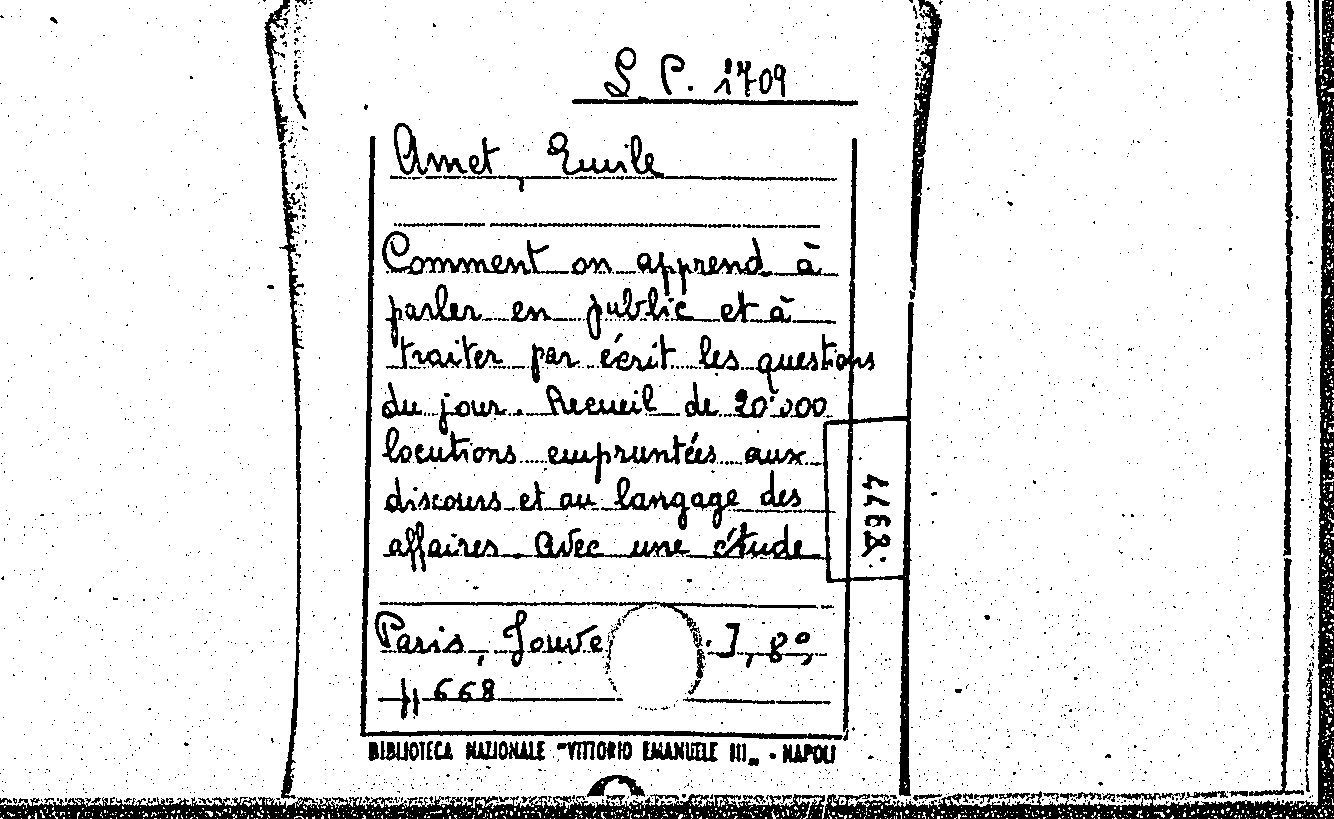 S. P. 1709
Amet, Emile
Comment on apprend à
parler en public et à
traiter par écrit les questions
du jour. Recueil de 20'000
locutions empruntées aux
discours et au langage des
affaires. Avec une étude
Paris, Jouve
], 8º,
pp. 668
BIBLIOTECA NAZIONALE "VITTORIO EMANUELE III„ - NAPOLI